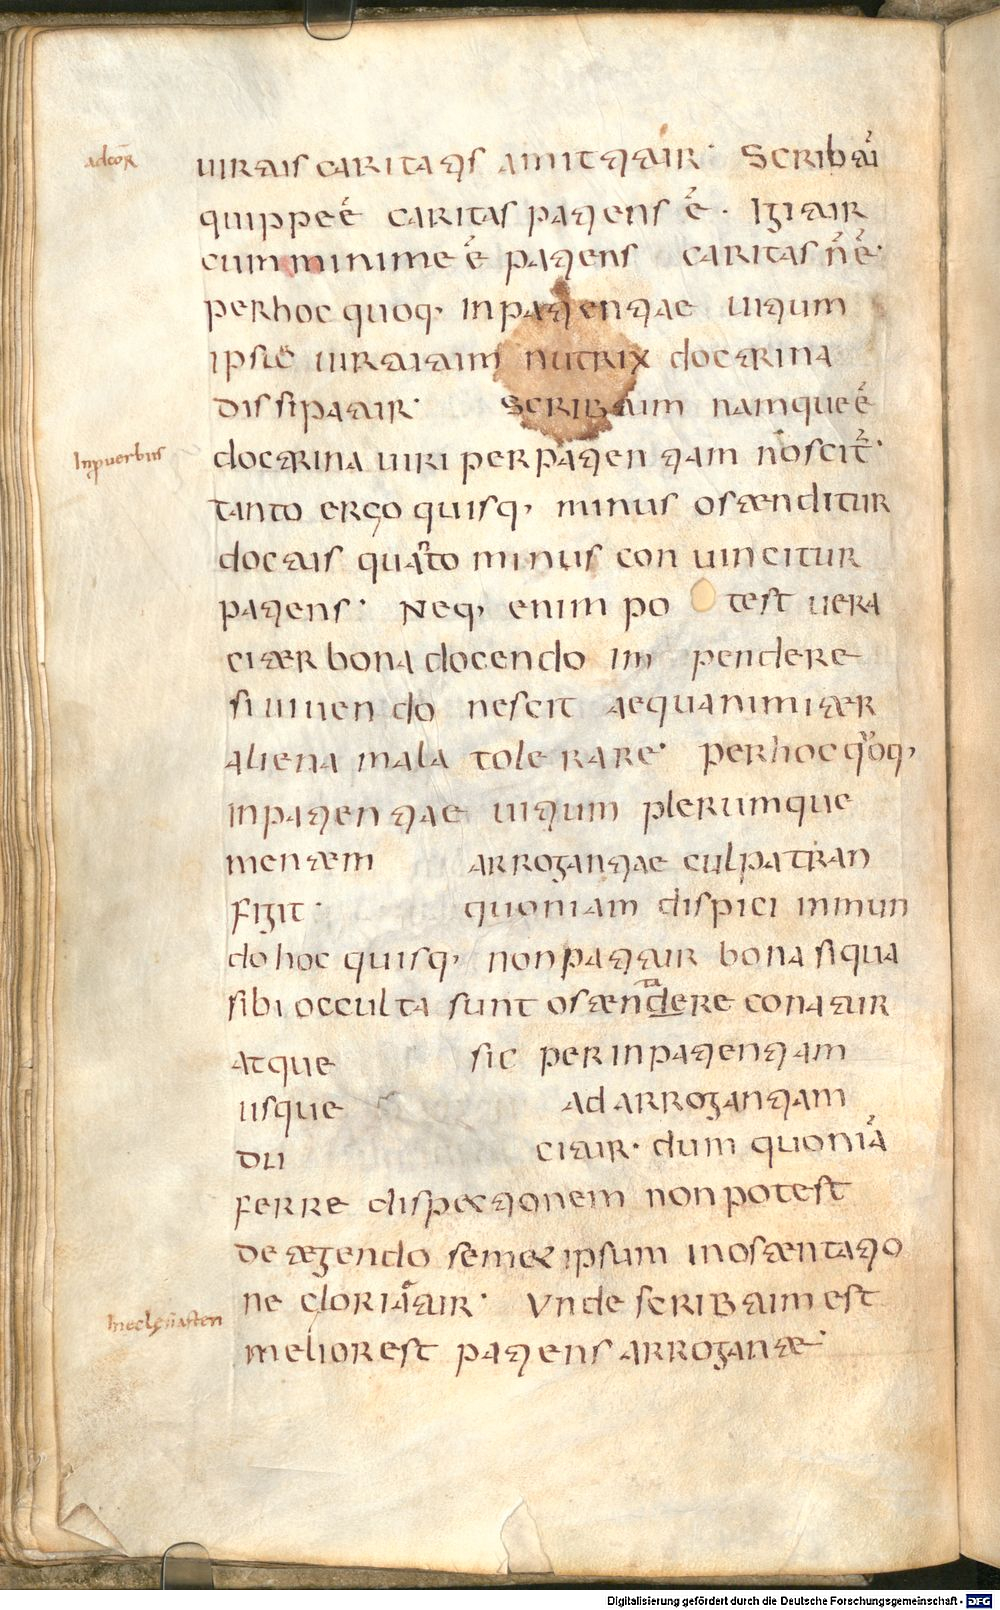 ad cor̄
uirtus caritatis amittitur· Scribtū
quippe ē caritas patiens ē· Igitur
cum minime ē patiens caritas n̄ ē·
per hoc quoq, inpatientiae uitium
ipse uirtutum nutrix doctrina
dissipatur· Scribtum namque ē
In puerbiis
doctrina uiri per patientiam noscit̄·
tanto ergo quisq, minus ostenditur
doctus quāto minus conuincitur
patiens· Neq, enim po test uera
citer bona docendo impendere
si uiuendo nescit aequanimiter
aliena mala tolerare· per hoc qͦoq,
inpatientiae uitium plerumque
mentem arrogantiae culpa tran
figit· quoniam dispici in mun
do hoc quisq, non patitur bona si qua
sibi occulta sunt ostendere conatur
ta
atque sic per inpatientiam
usque ad arrogantiam
du citur· dum quoniā
ferre dispectionem non potest
detegendo semet ipsum in ostentatio
ne gloriātur· Unde scribtum est
In eclesiasten
melior est patiens arrogante·
Digitalisierung gefördert durch die Deutsche Forschungsgemeinschaft - DFG